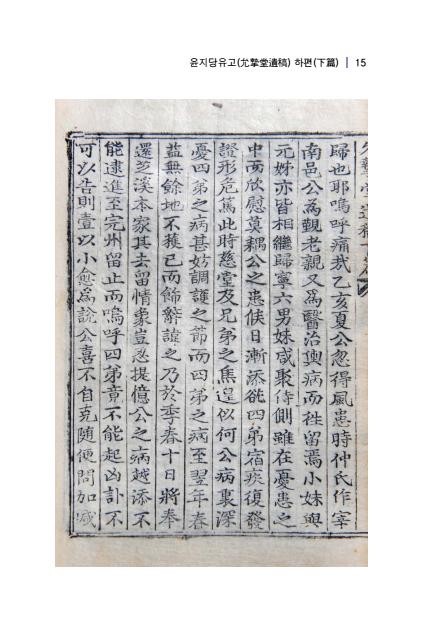 윤지당유고(允摯堂遺稿) 하편(下篇) | 15
歸也耶嗚呼痛哉乙亥夏公忽得風患時仲氏作宰
南邑公為覲老親又為醫治輿病而往留焉小妹與
元姊亦皆相繼歸寧六男妹咸聚侍側雖在憂患之
中而欣慰莫耦公之患候日漸添欲四弟宿疾復發
證形危篤此時慈堂及兄弟之焦遑似何公病裏深
憂四弟之病甚妨調護之節而四弟之病至翌年春
蓋無餘地不獲已而飾辭諱之乃於季春十日將奉
還芝溪本家其去留情象豈忍提憶公之病越添不
能逮進至完州留止而嗚呼四弟竟不能起凶訃不
可以告則壹以小愈為說公喜不自克隨便問加減